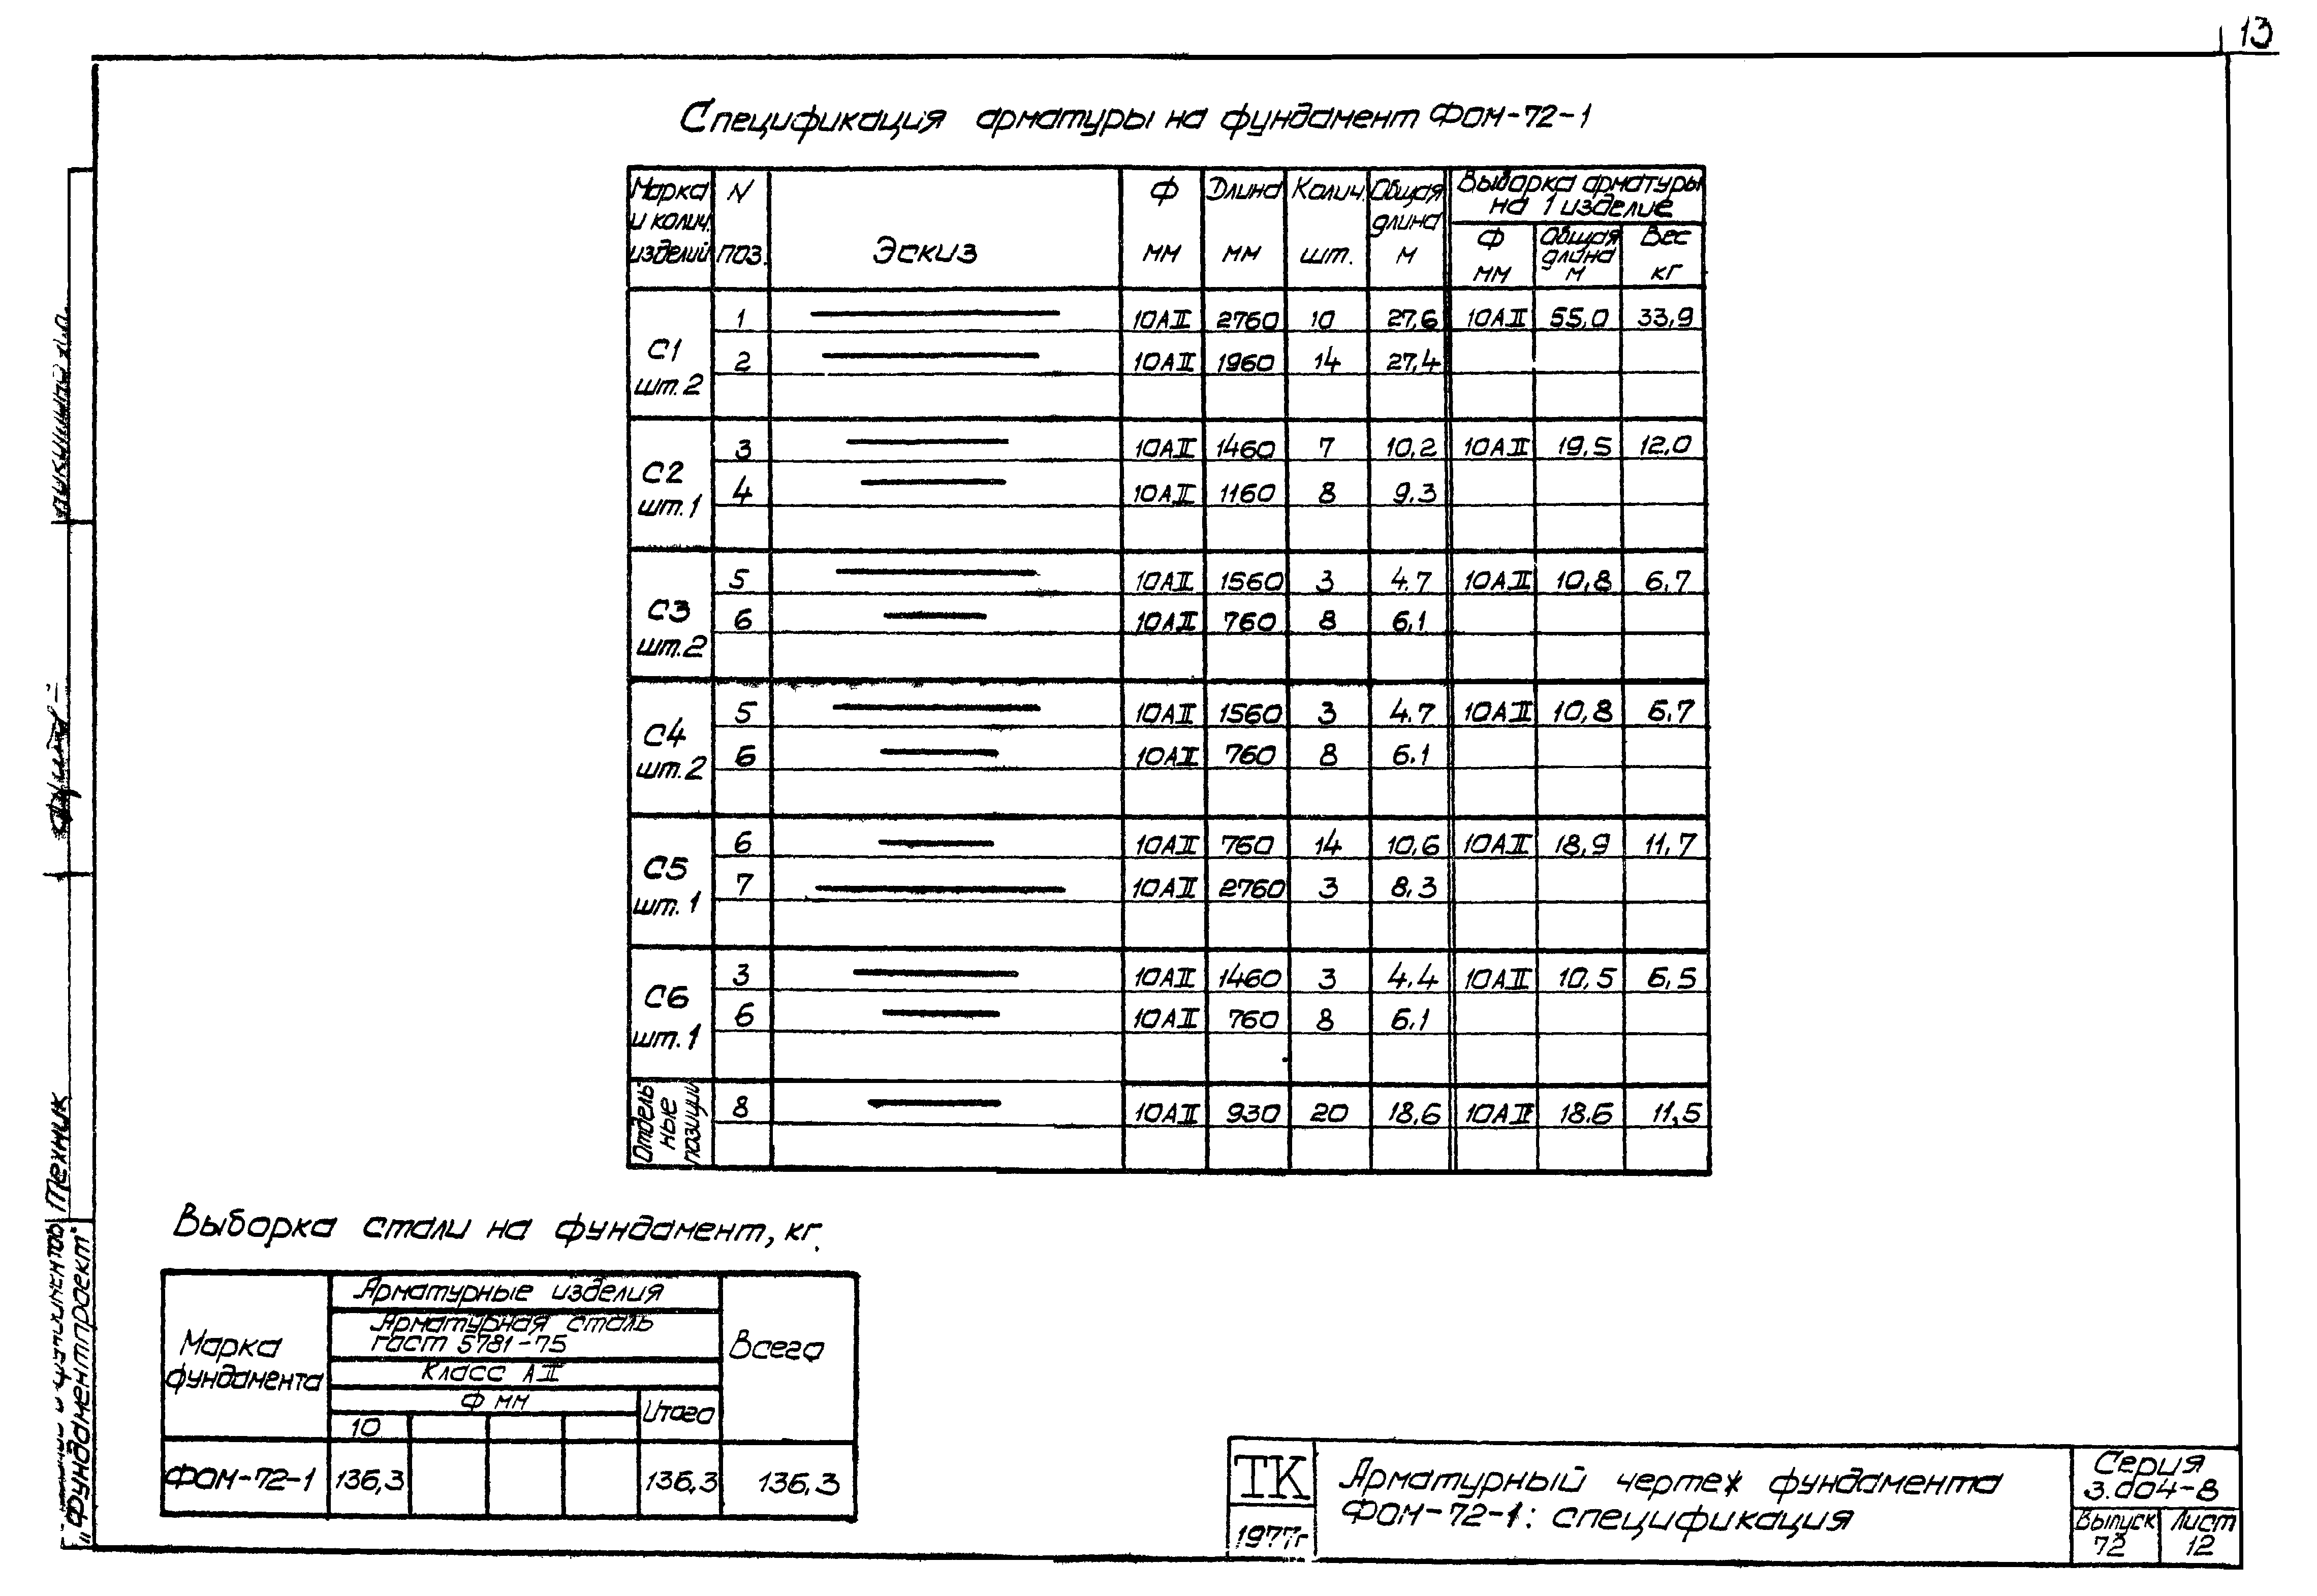 13
Спецификация арматуры на фундамент ФОМ-72-1
Марка и колич. изделий | N поз. | Эскиз | Ф мм | Длина мм | Колич. шт. | Общая длина м | Выборка арматуры на 1 изделие
Ф мм | Общая длина м | Вес кг
С1 шт.2 | 1 | 10АII | 2760 | 10 | 27,6 | 10АII | 55,0 | 33,9
2 | 10АII | 1960 | 14 | 27,4
С2 шт.1 | 3 | 10АII | 1460 | 7 | 10,2 | 10АII | 19,5 | 12,0
4 | 10АII | 1160 | 8 | 9.3
С3 шт.2 | 5 | 10АII | 1560 | 3 | 4.7 | 10АII | 10,8 | 6,7
6 | 10АII | 760 | 8 | 6,1
С4 шт.2 | 5 | 10АII | 1560 | 3 | 4.7 | 10АII | 10,8 | 6.7
6 | 10АII | 760 | 8 | 6.1
С5 шт.1 | 6 | 10АII | 760 | 14 | 10,6 | 10АII | 18,9 | 11,7
7 | 10АII | 2760 | 3 | 8.3
С6 шт.1 | 3 | 10АII | 1460 | 3 | 4.4 | 10АII | 10,5 | 6,5
6 | 10АII | 760 | 8 | 6.1
Отдельные позиции | 8 | 10АII | 930 | 20 | 18,6 | 10АII | 18.6 | 11,5
Выборка стали на фундамент, кг.
Марка фундамента | Арматурные изделия | Всего
Арматурная сталь
гост 5781-75
Класс АII
Ф мм | Итого
10
ФОМ-72-1 | 136,3 | 136,3 | 136,3
ТК
1977г
Арматурный чертеж фундамента
ФОМ-72-1: спецификация
Серия
3.004-8
Выпуск
72
Лист
12
Техник
"Фундаментпроект"